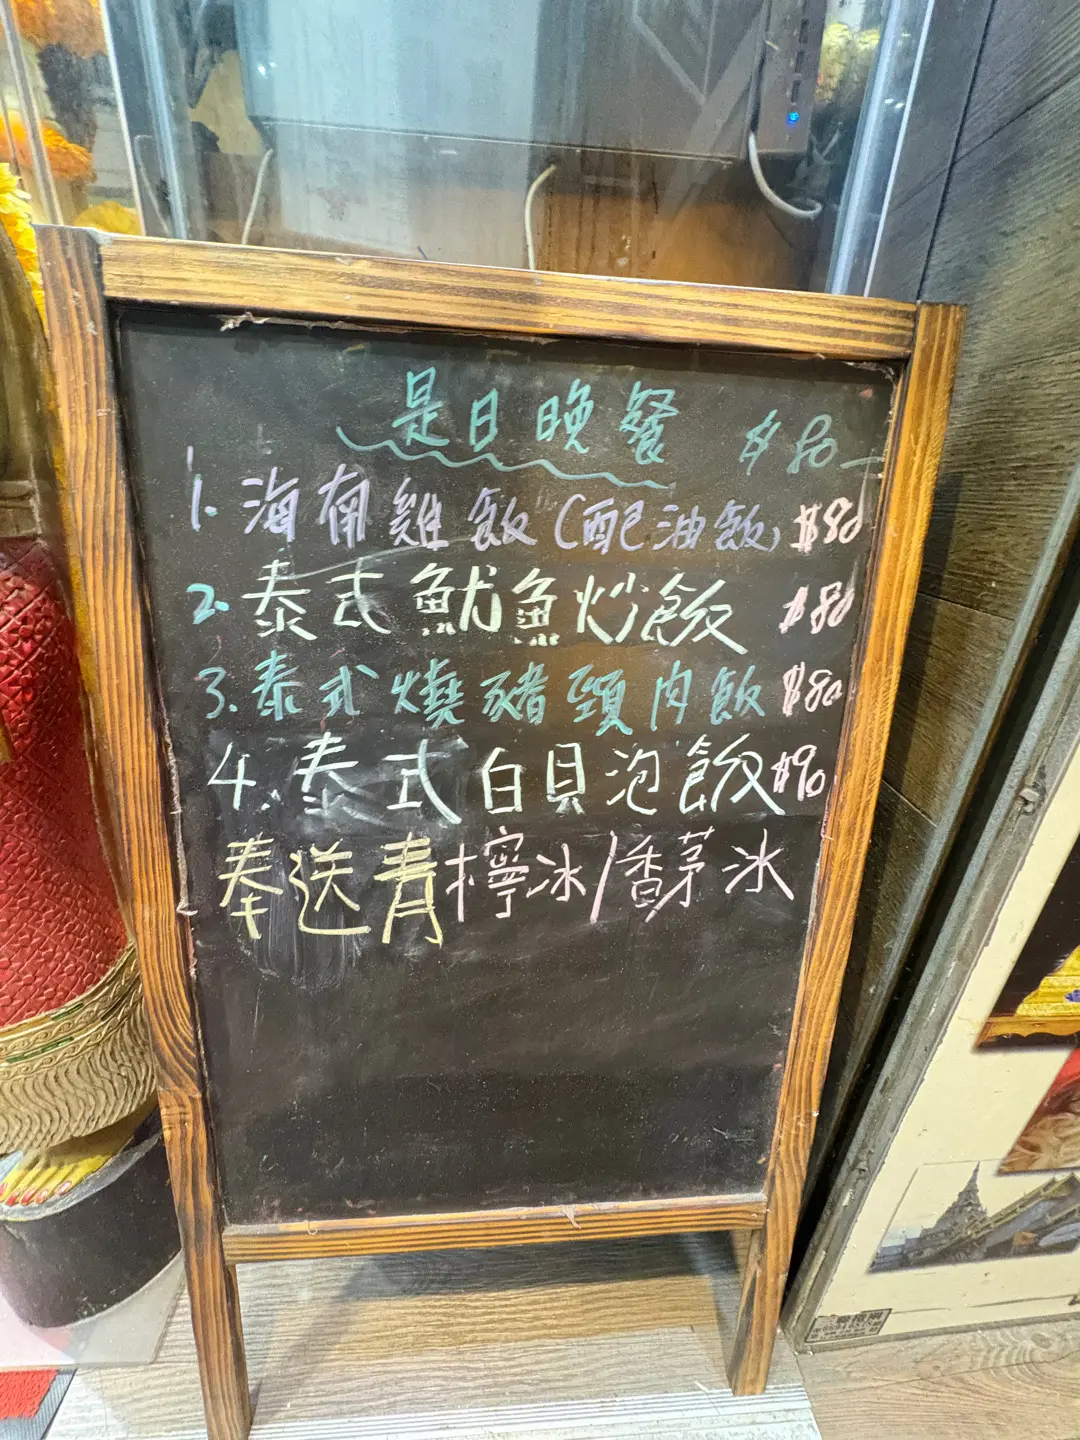 是日晚餐 $80
1. 海南雞飯(配油飯) $80
2. 泰式魷魚炒飯 $80
3. 泰式燒豬頸肉飯 $80
4. 泰式白貝泡飯 $90
奉送青檸冰/香茅冰